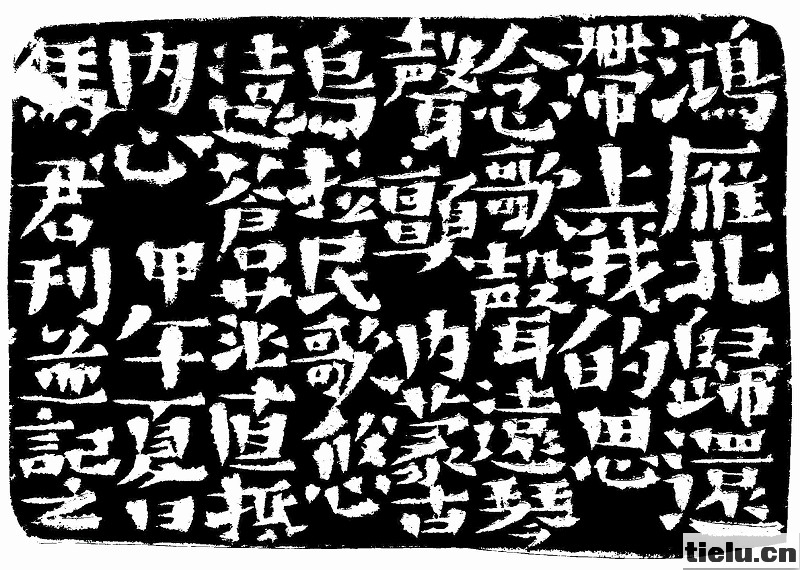 鴻雁北歸還
帶上我的思
念歌聲遠琴
聲顫 内蒙古
烏拉民歌悠
遠蒼直抵
内心 甲午夏日
君刊並記之
tielu.cn